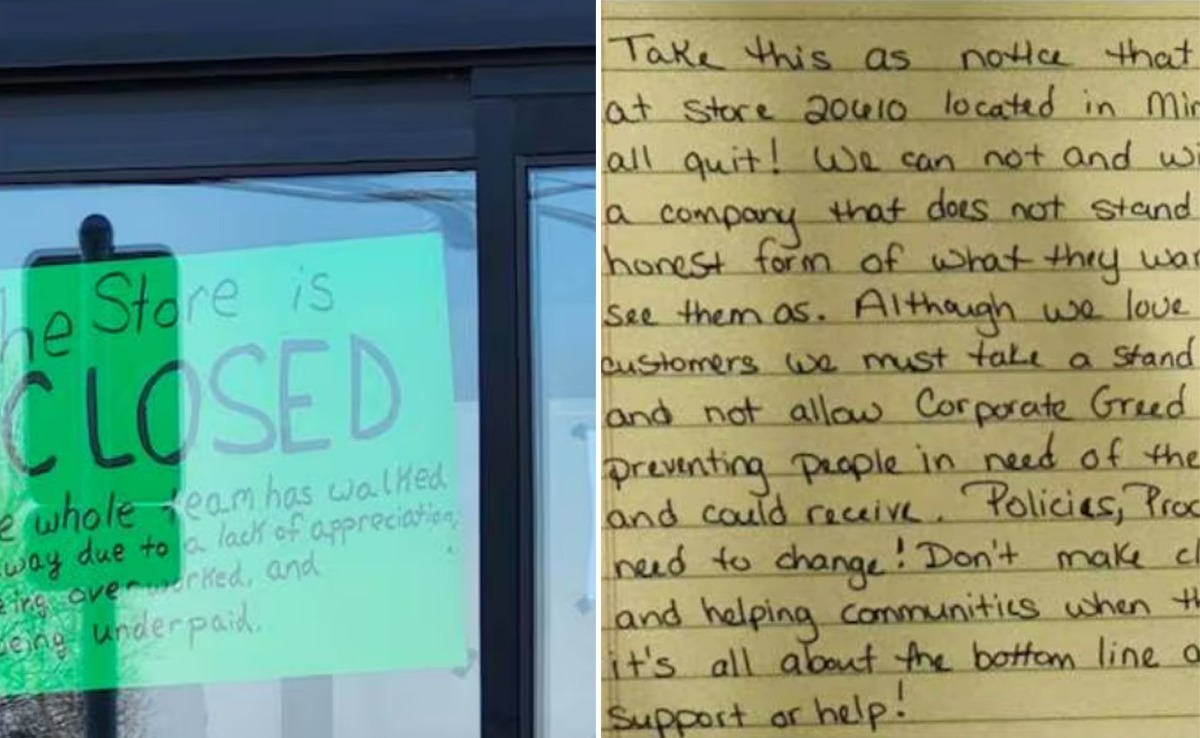 he Store is
CLOSED
e whole team has walked
way due to a lack of appreciation,
eing overworked, and
being underpaid.
Take this as notice that
at store 20610 located in Min
all quit! We can not and wi
a company that does not stand
honest form of what they wan
see them as. Although we love
customers we must take a stand
and not allow Corporate Greed
preventing people in need of the
and could receive. Policies, Proc
need to change! Don't make cl
and helping communities when th
it's all about the bottom line a
support or help!